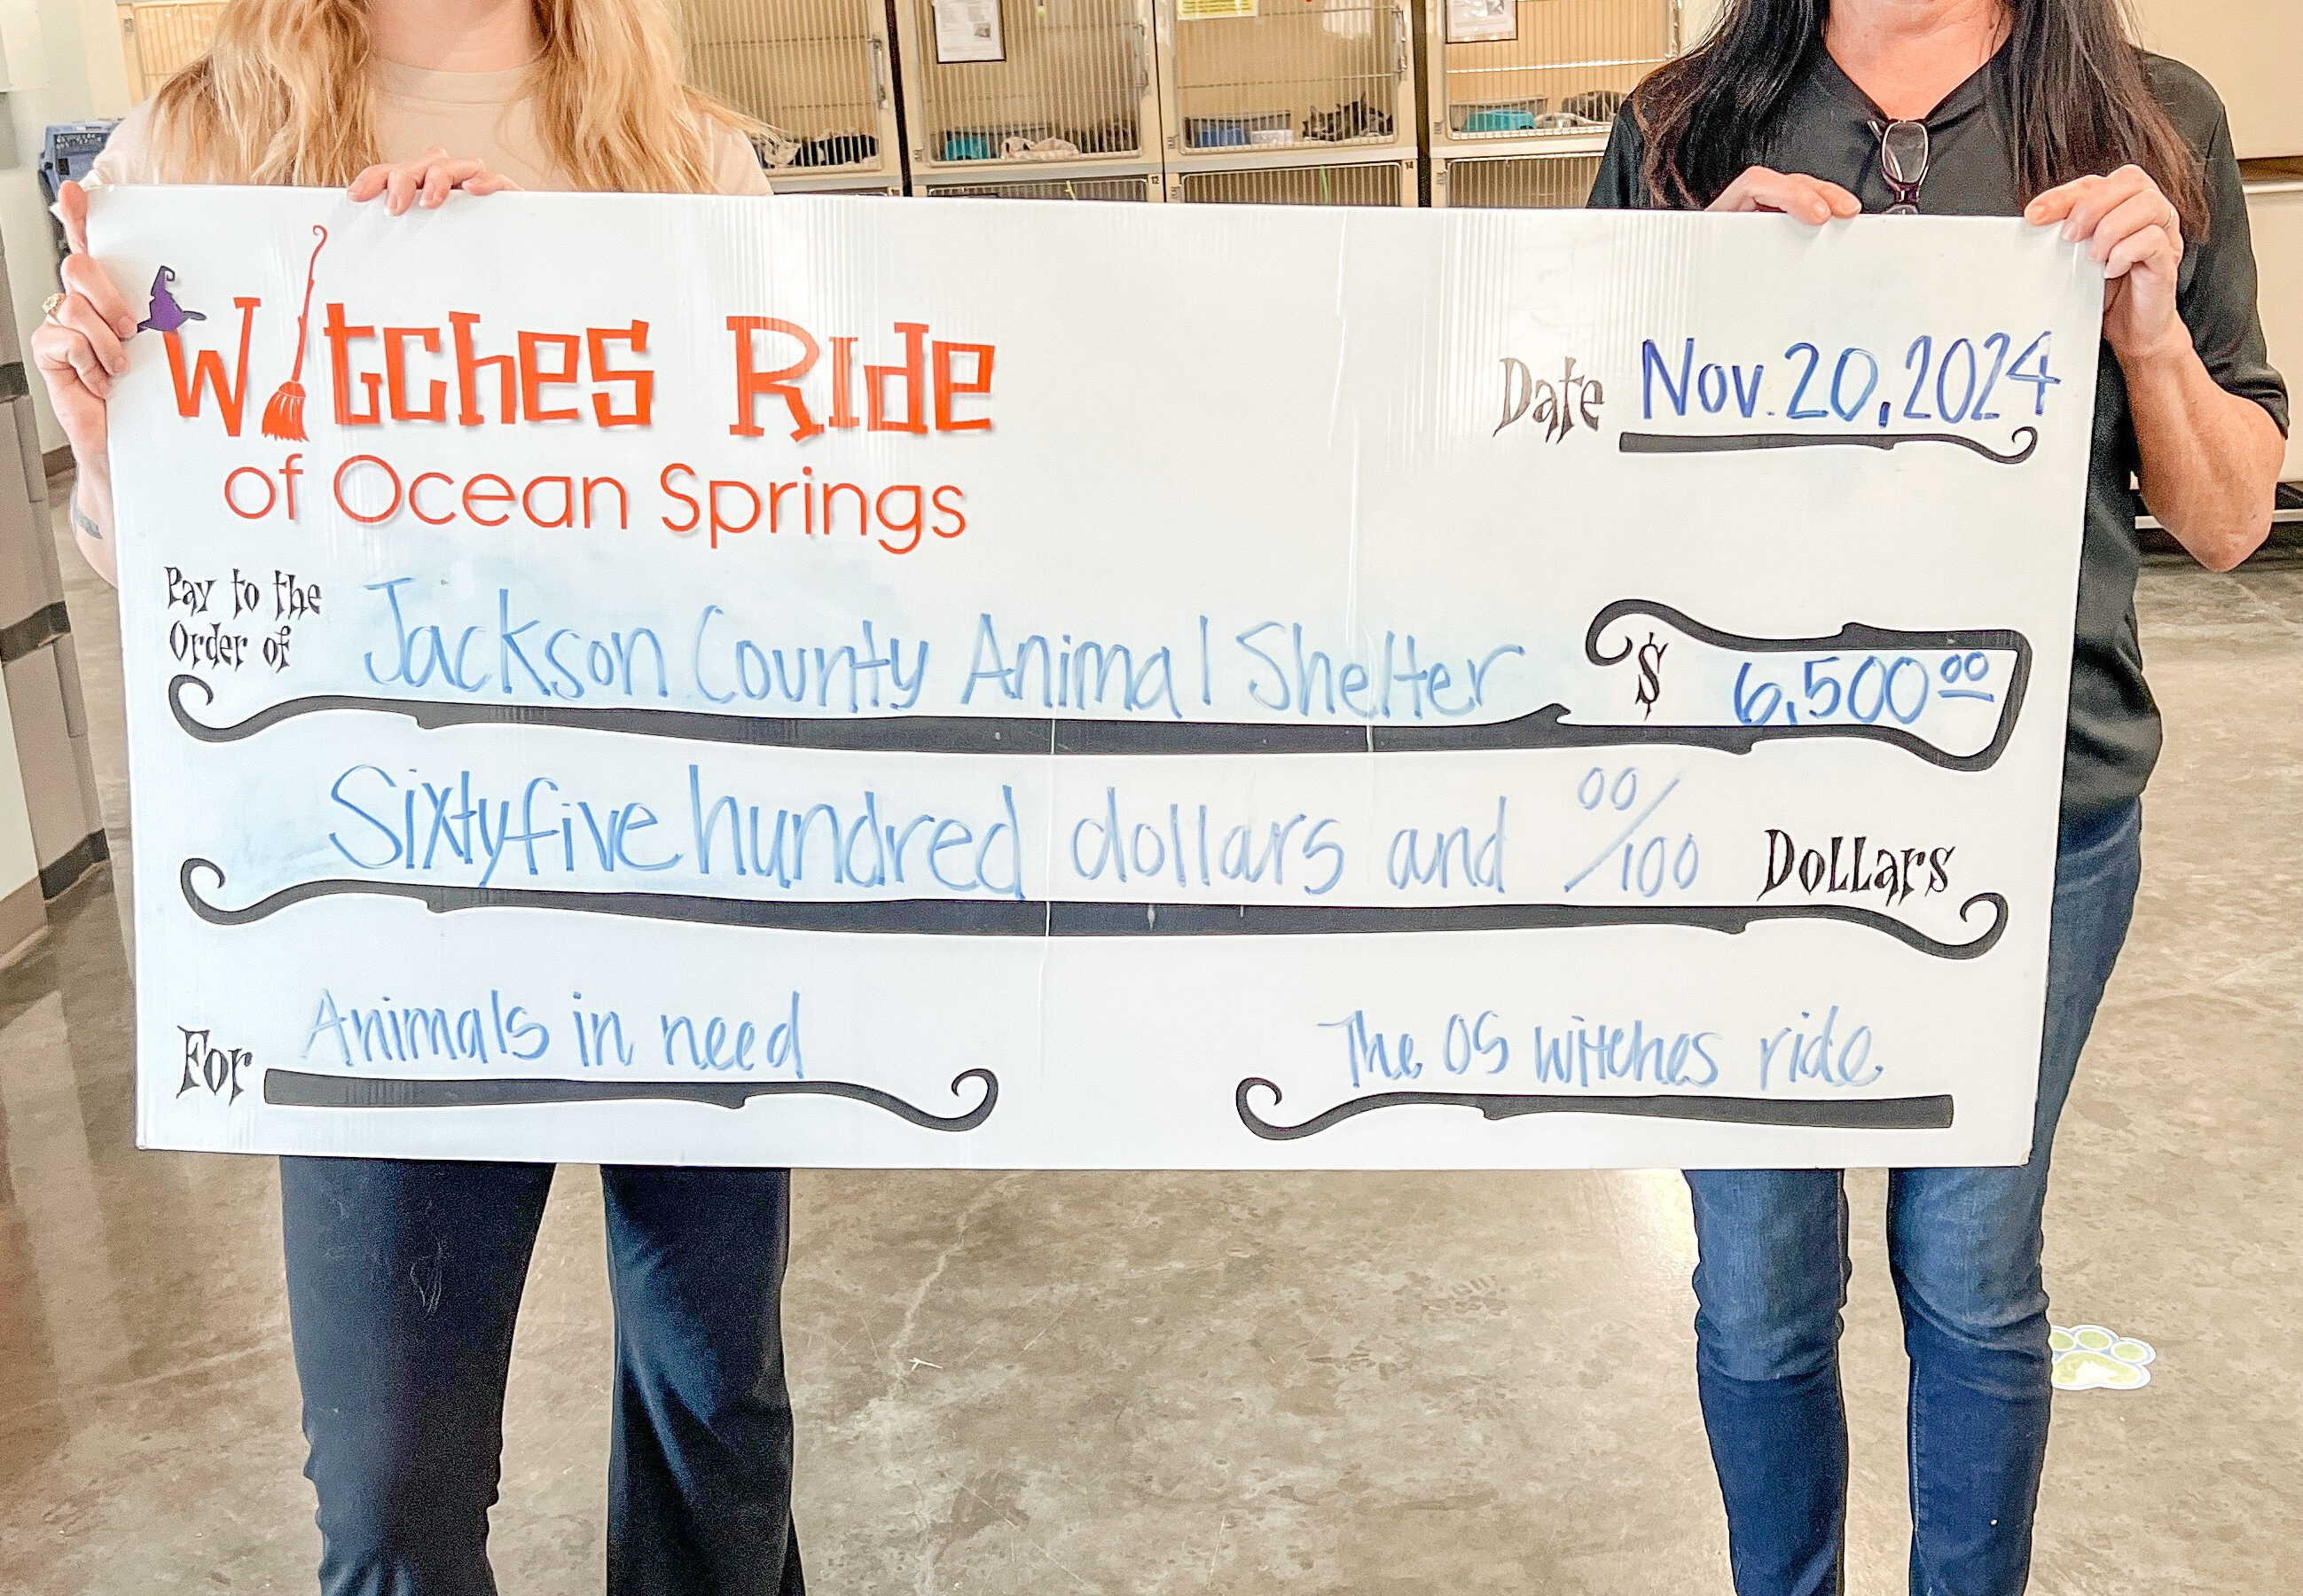 Witches Ride
of Ocean Springs
Date Nov. 20, 2024
Pay to the
Order of Jackson County Animal Shelter $ 6,500 00
Sixtyfive hundred dollars and 00/100 Dollars
For Animals in need The OS witches ride
12
14